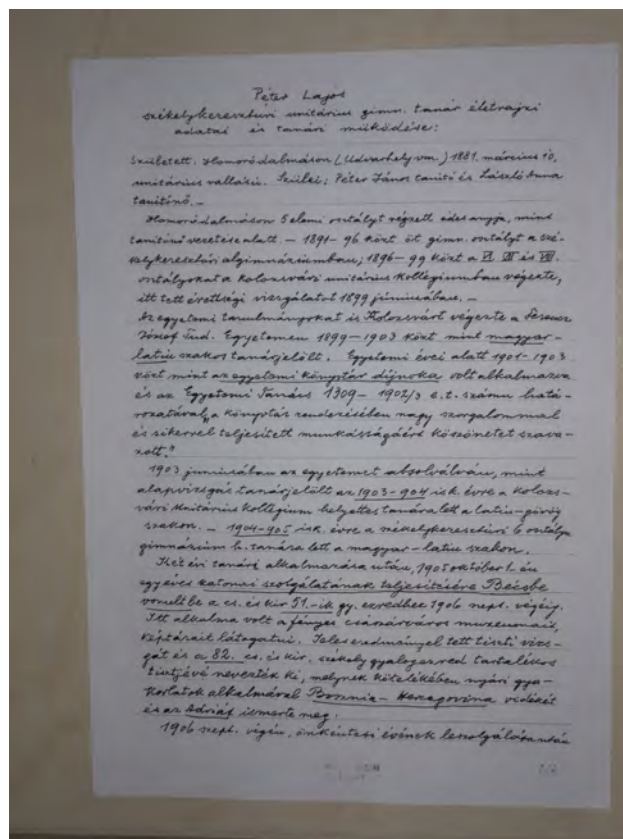 Péter Lajos
székelykeresztúri unitárius gimn. tanár életrajzi
adatai és tanári működése:
Született. Homoródalmáson (Udvarhely vm.) 1881. március 10,
unitárius vallású. Szülei: Péter János tanító és László Anna
tanítónő. –
Homoródalmáson 5 elemi osztályt végzett édesanyja, mint
tanítónő vezetése alatt. – 1891–96 közt öt gimn. osztályt a szé-
kelykeresztúri algimnáziumban; 1896–99 közt a VI. VII és VIII.
osztályokat a kolozsvári unitárius Kollégiumban végezte,
itt tett érettségi vizsgálatot 1899 júniusában. –
Az egyetemi tanulmányokat is Kolozsvárt végezte a Ferencz
József Tud. Egyetemen 1899–1903 közt mint magyar-
latin szakos tanárjelölt. Egyetemi évei alatt 1901–1903
közt mint az egyetemi könyvtár díjnoka volt alkalmazva
és az Egyetemi Tanács 1309–1902/3 e.t. számú hatá-
rozatával „a könyvtár rendezésében nagy szorgalommal
és sikerrel teljesített munkásságáért köszönetet szava-
zott."
1903 júniusában az egyetemet absolválván, mint
alapvizsgás tanárjelölt az 1903–904 isk. évre a kolozs-
vári Unitárius Kollégium helyettes tanára lett a latin-görög
szakon. – 1904–905 isk. évre a székelykeresztúri 6 osztályu
gimnázium h. tanára lett a magyar-latin szakon.
Két évi tanári alkalmazása után, 1905 október 1. én
egyéves katonai szolgálatának teljesítésére Bécsbe
vonult be a cs. és kir 51.-ik gy. ezredhez 1906 sept. végéig.
Itt alkalma volt a fényes császárváros muzeumait,
képtárait látogatni. Jeles eredménnyel tett tiszti vizs-
gát és a 82. cs. és kir. székely gyalogezred tartalékos
tisztjévé nevezték ki, melynek kötelékében nyári gya-
korlatok alkalmával Bosznia-Herczegovina vidékét
és az Adriát ismerte meg.
1906 szept. végén, önkéntesi évének leszolgálása után